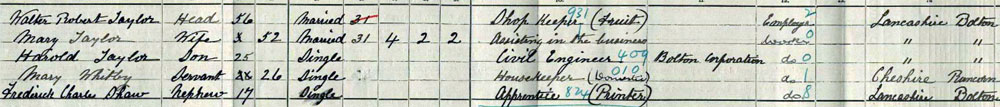 Walter Robert Taylor Head 56 Married 31 Shop Keeper (Fruit) 931 Employer 2 Lancashire Bolton
Mary Taylor Wife 52 Married 31 4 2 2 Assisting in the business Worker 0 " "
Harold Taylor Son 25 Single Civil Engineer 409 Bolton Corporation do 0 " "
Mary Whitby Servant 26 Single Housekeeper (Domestic) 010 do 1 Cheshire Runcorn
Frederick Charles Shaw Nephew 17 Single Apprentice 824 (Printer) do 8 Lancashire Bolton